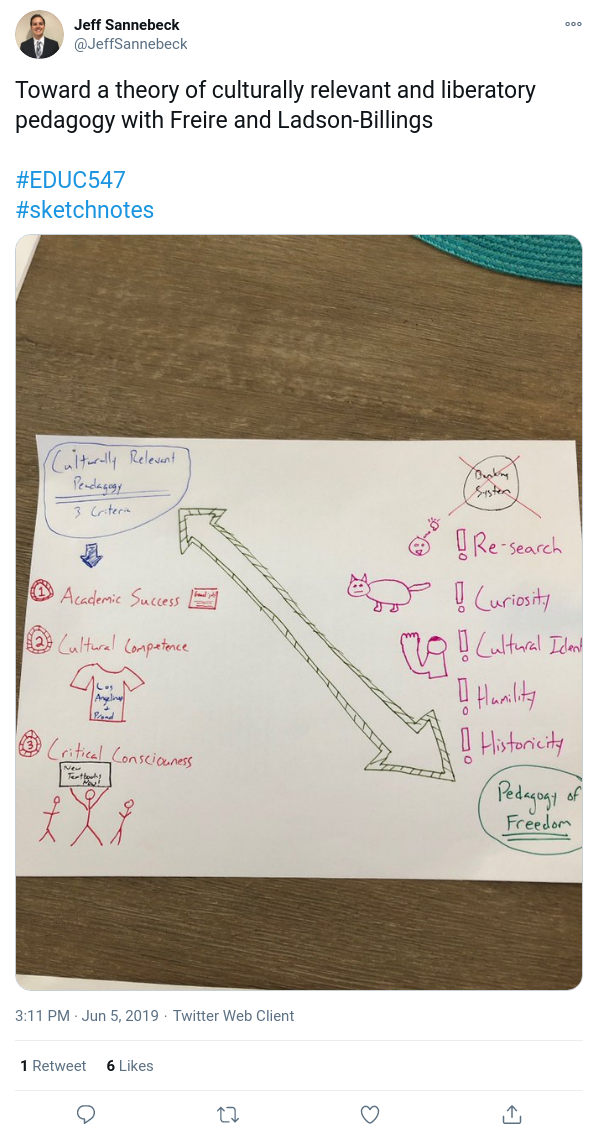 Jeff Sannebeck
@JeffSannebeck
Toward a theory of culturally relevant and liberatory
pedagogy with Freire and Ladson-Billings
#EDUC547
#sketchnotes
Culturally Relevant
Pedagogy
3 Criteria
1 Academic Success
2 Cultural Competence
Los
Angelino
+
Proud
3 Critical Consciouness
New
Textbooks
Now!
Banking
System
! Re-search
! Curiosity
! Cultural Iden
! Humility
! Historicity
Pedagogy of
Freedom
3:11 PM · Jun 5, 2019 · Twitter Web Client
1 Retweet 6 Likes